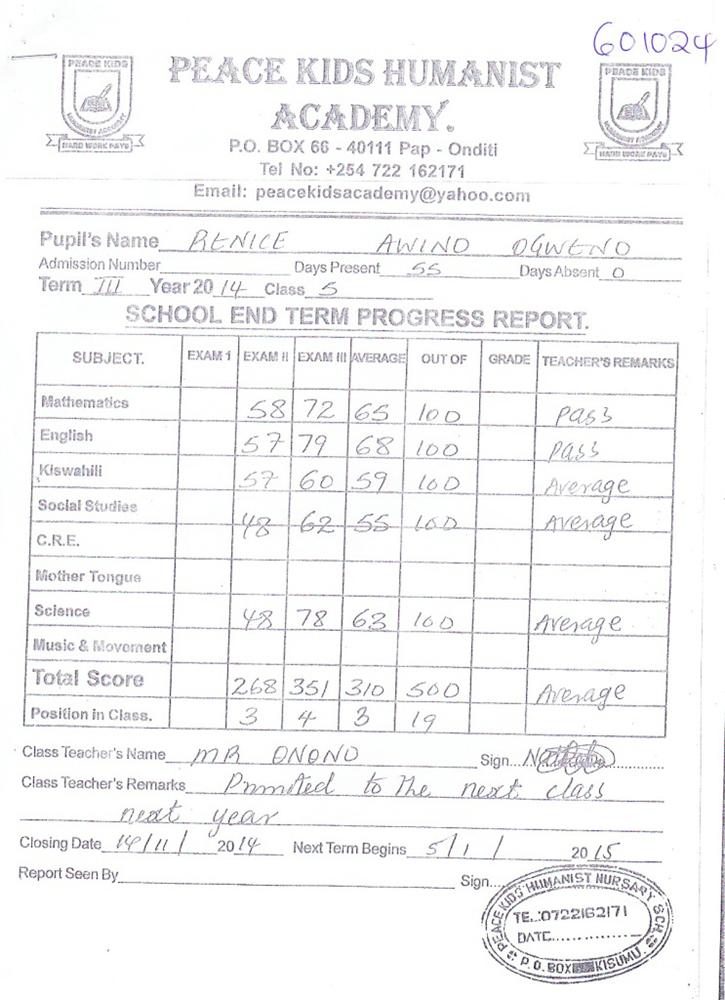 601024
PEACE KIDS
HUMANIST ACADEMY
HARD WORK PAYS
PEACE KIDS HUMANIST
ACADEMY.
PEACE KIDS
HUMANIST ACADEMY
HARD WORK PAYS
P.O. BOX 66 - 40111 Pap - Onditi
Tel No: +254 722 162171
Email: peacekidsacademy@yahoo.com
Pupil's Name BENICE AWINO OGWENO
Admission Number Days Present 55 Days Absent 0
Term III Year 2014 Class 5
SCHOOL END TERM PROGRESS REPORT.
SUBJECT. EXAM 1 EXAM II EXAM III AVERAGE OUT OF GRADE TEACHER'S REMARKS
Mathematics 58 72 65 100 pass
English 57 79 68 100 pass
Kiswahili 57 60 59 100 Average
Social Studies 48 62 55 100 Average
C.R.E.
Mother Tongue
Science 48 78 63 100 Average
Music & Movement
Total Score 268 351 310 500 Average
Position in Class. 3 4 3 19
Class Teacher's Name MR ONONO Sign...
Class Teacher's Remarks Promoted to the next class
next year
Closing Date 14/11/ 2014 Next Term Begins 5/1/ 2015
Report Seen By Sign...
PEACE KIDS HUMANIST NURSARY SCH.
TE..:0722162171
DATE..............
P.O. BOX KISUMU.